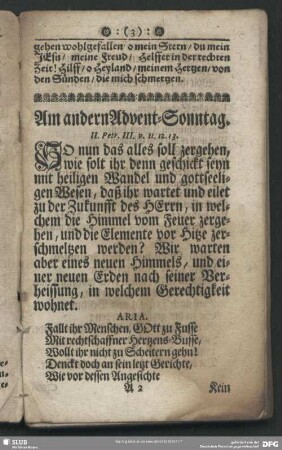 :(3):
gehen wohlgefallen o mein Stern / du mein
JEsu / meine Freud / Helffet in der rechten
Zeit! Hilff / o Heyland / meinem Hertzen / von
den Sünden / die mich schmertzen.
Am andern Advent-Sonntag.
II. Petr. III. v. 11. 12. 13.
SO nun das alles soll zergehen,
wie solt ihr denn geschickt seyn
mit heiligen Wandel und gottseeli-
gen Wesen, daß ihr wartet und eilet
zu der Zukunfft des HErrn, in wel-
chem die Himmel vom Feuer zerge-
hen, und die Elemente vor Hitze zer-
schmeltzen werden? Wir warten
aber eines neuen Himmels, und ei-
ner neuen Erden nach seiner Ver-
heissung, in welchem Gerechtigkeit
wohnet.
ARIA.
Fallt ihr Menschen, GOtt zu Fusse
Mit rechtschaffner Hertzens-Busse,
Wollt ihr nicht zu Scheitern gehn!
Denckt doch an sein letzt Gerichte,
Wie vor dessen Angesichte
A 2 Kein
SLUB
DFG